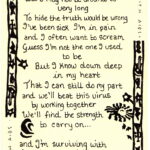 very long
To hide the truth would be wrong
I've been sick I'm in pain
and I often want to scream
Guess I'm not the one I used
to be
But I know down deep
in my heart
That I can still do my part
and we'll beat this virus
by working together
We'll find the strength
to carry on...
and I'm surviving with